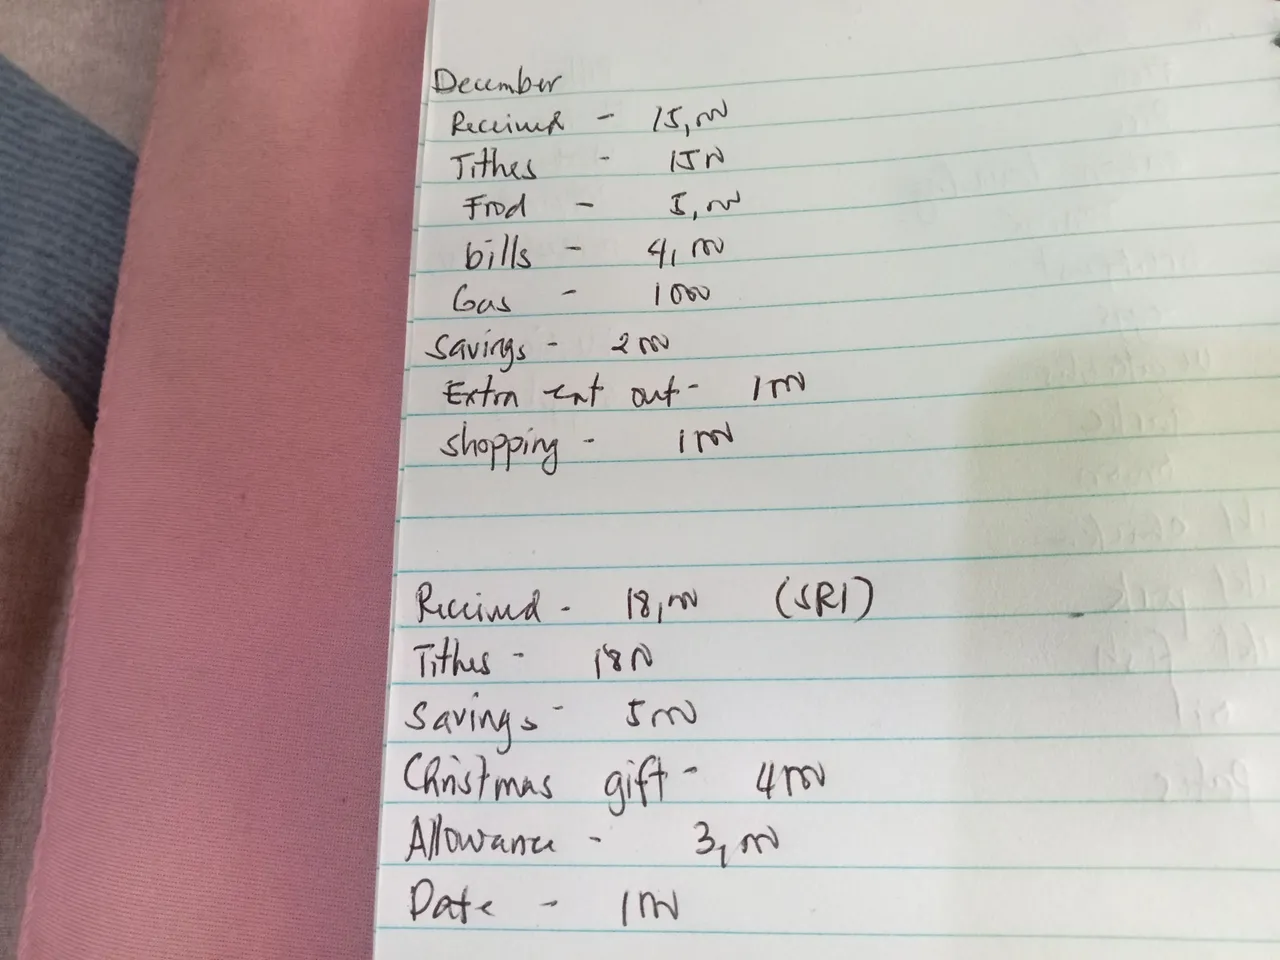 December
Received - 15,000
Tithes - 1500
Food - 5,000
bills - 4,000
Gas - 1000
Savings - 2000
Extra eat out - 1000
shopping - 1000
Received - 18,000 (SRI)
Tithes - 1800
Savings - 5000
Christmas gift - 4000
Allowance - 3,000
Date - 1000